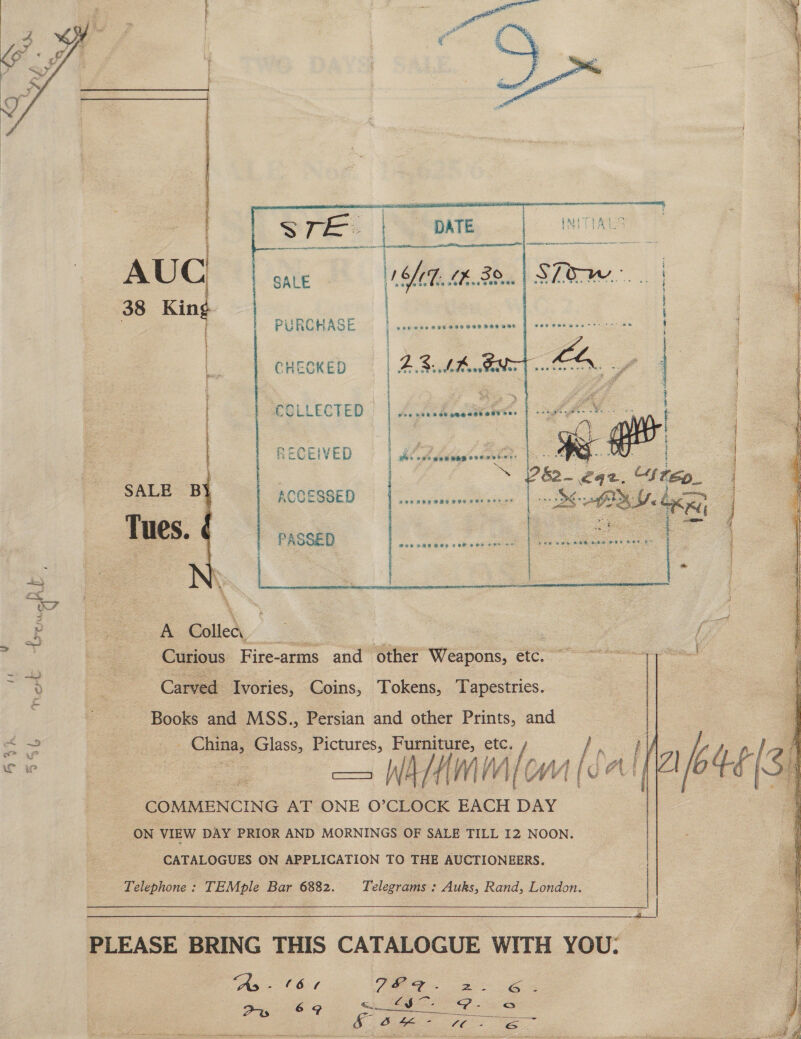 This
Duplicate
TWO DAYS SALE.
STE DATE INITIALS
AUC
38 King
SALE 16/17. IX. 30. STOW.
PURCHASE
CHECKED 23. IX. 30
COLLECTED
RECEIVED
262- £92.
SALE BY
ACCESSED
Tues.
PASSED
N
A Collec
Curious Fire-arms and other Weapons, etc.
Carved Ivories, Coins, Tokens, Tapestries.
Books and MSS., Persian and other Prints, and
China, Glass, Pictures, Furniture, etc.
WA/HMM/CM/Sal/21/648/3
COMMENCING AT ONE O'CLOCK EACH DAY
ON VIEW DAY PRIOR AND MORNINGS OF SALE TILL 12 NOON.
CATALOGUES ON APPLICATION TO THE AUCTIONEERS.
Telephone : TEMple Bar 6882. Telegrams : Auks, Rand, London.
PLEASE BRING THIS CATALOGUE WITH YOU.
161 789. 2. 6.
69 9. 0
804 - 11 - 6
532 "
556 not bought.